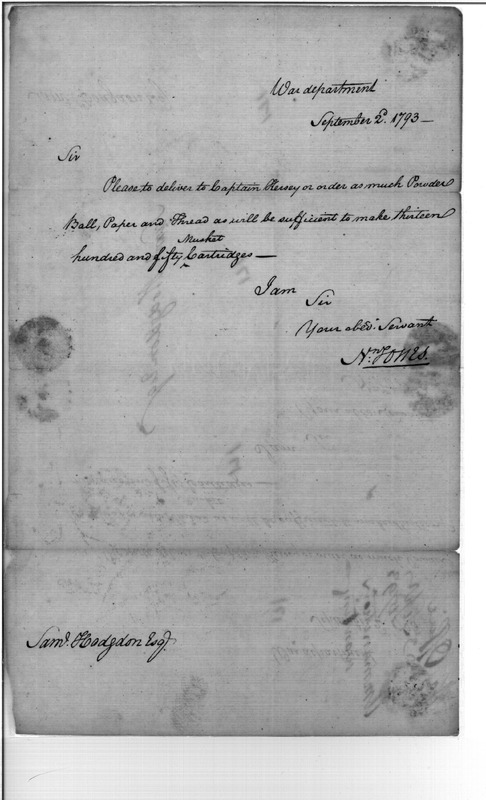 War department
September 2d. 1793 —
Sir
Please to deliver to Captain Kersey or order as much Powder
Ball, Paper and Thread as will be sufficient to make thirteen
Musket
hundred and fifty ^ Cartridges —
I am
Sir
Your obed. Servant
Nn. Jones.
Saml. Hodgdon Esqr.